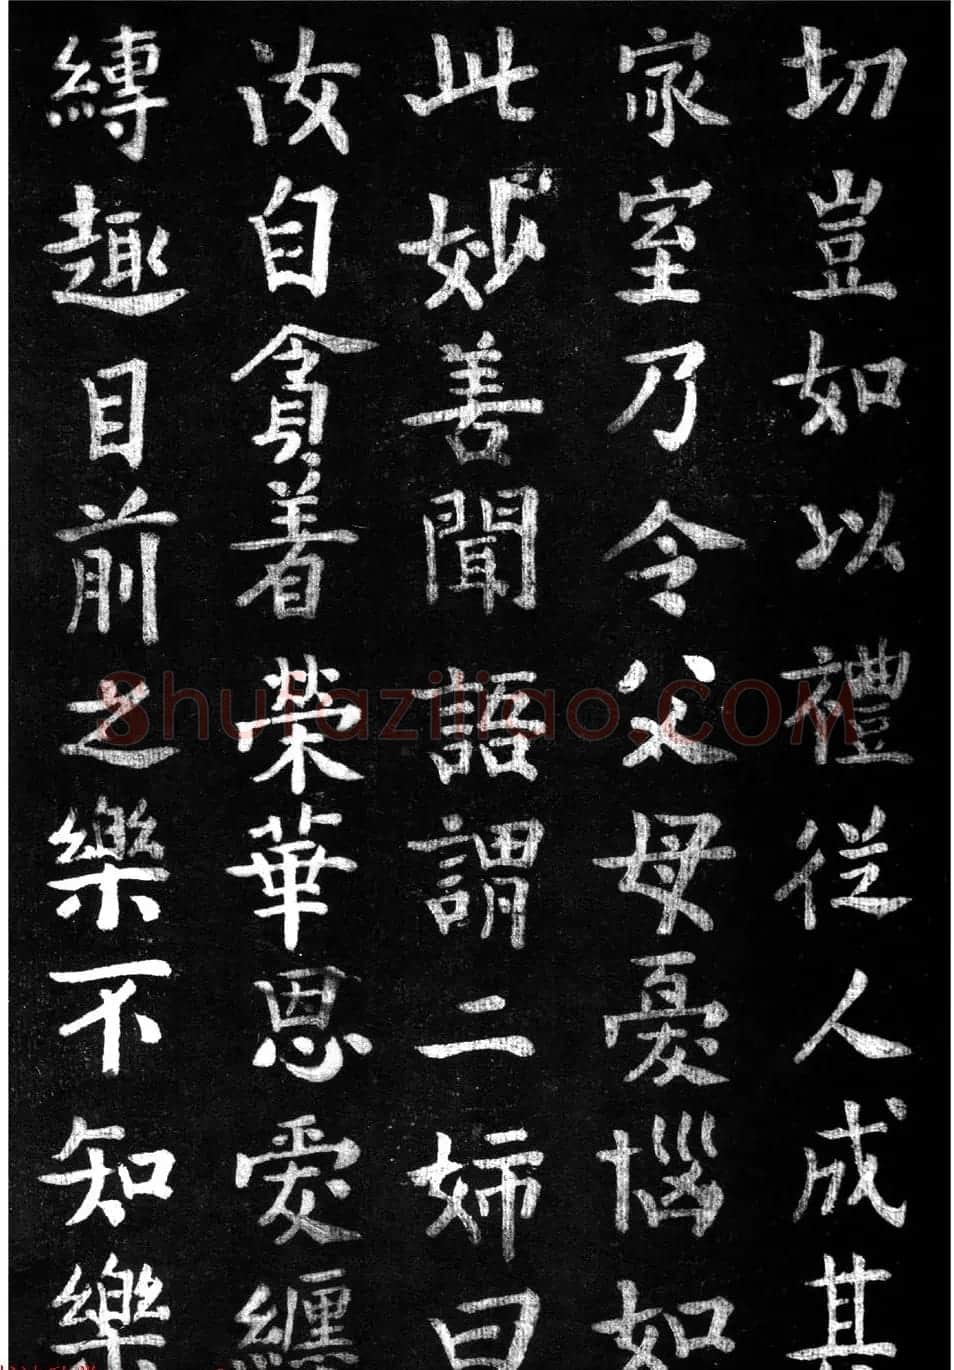 切豈如以禮從人成其
家室乃令父母憂惱如
此妙善聞語謂二姉曰
汝自貪着榮華恩愛纏
縛趣目前之樂不知樂
Shufaziliao.COM